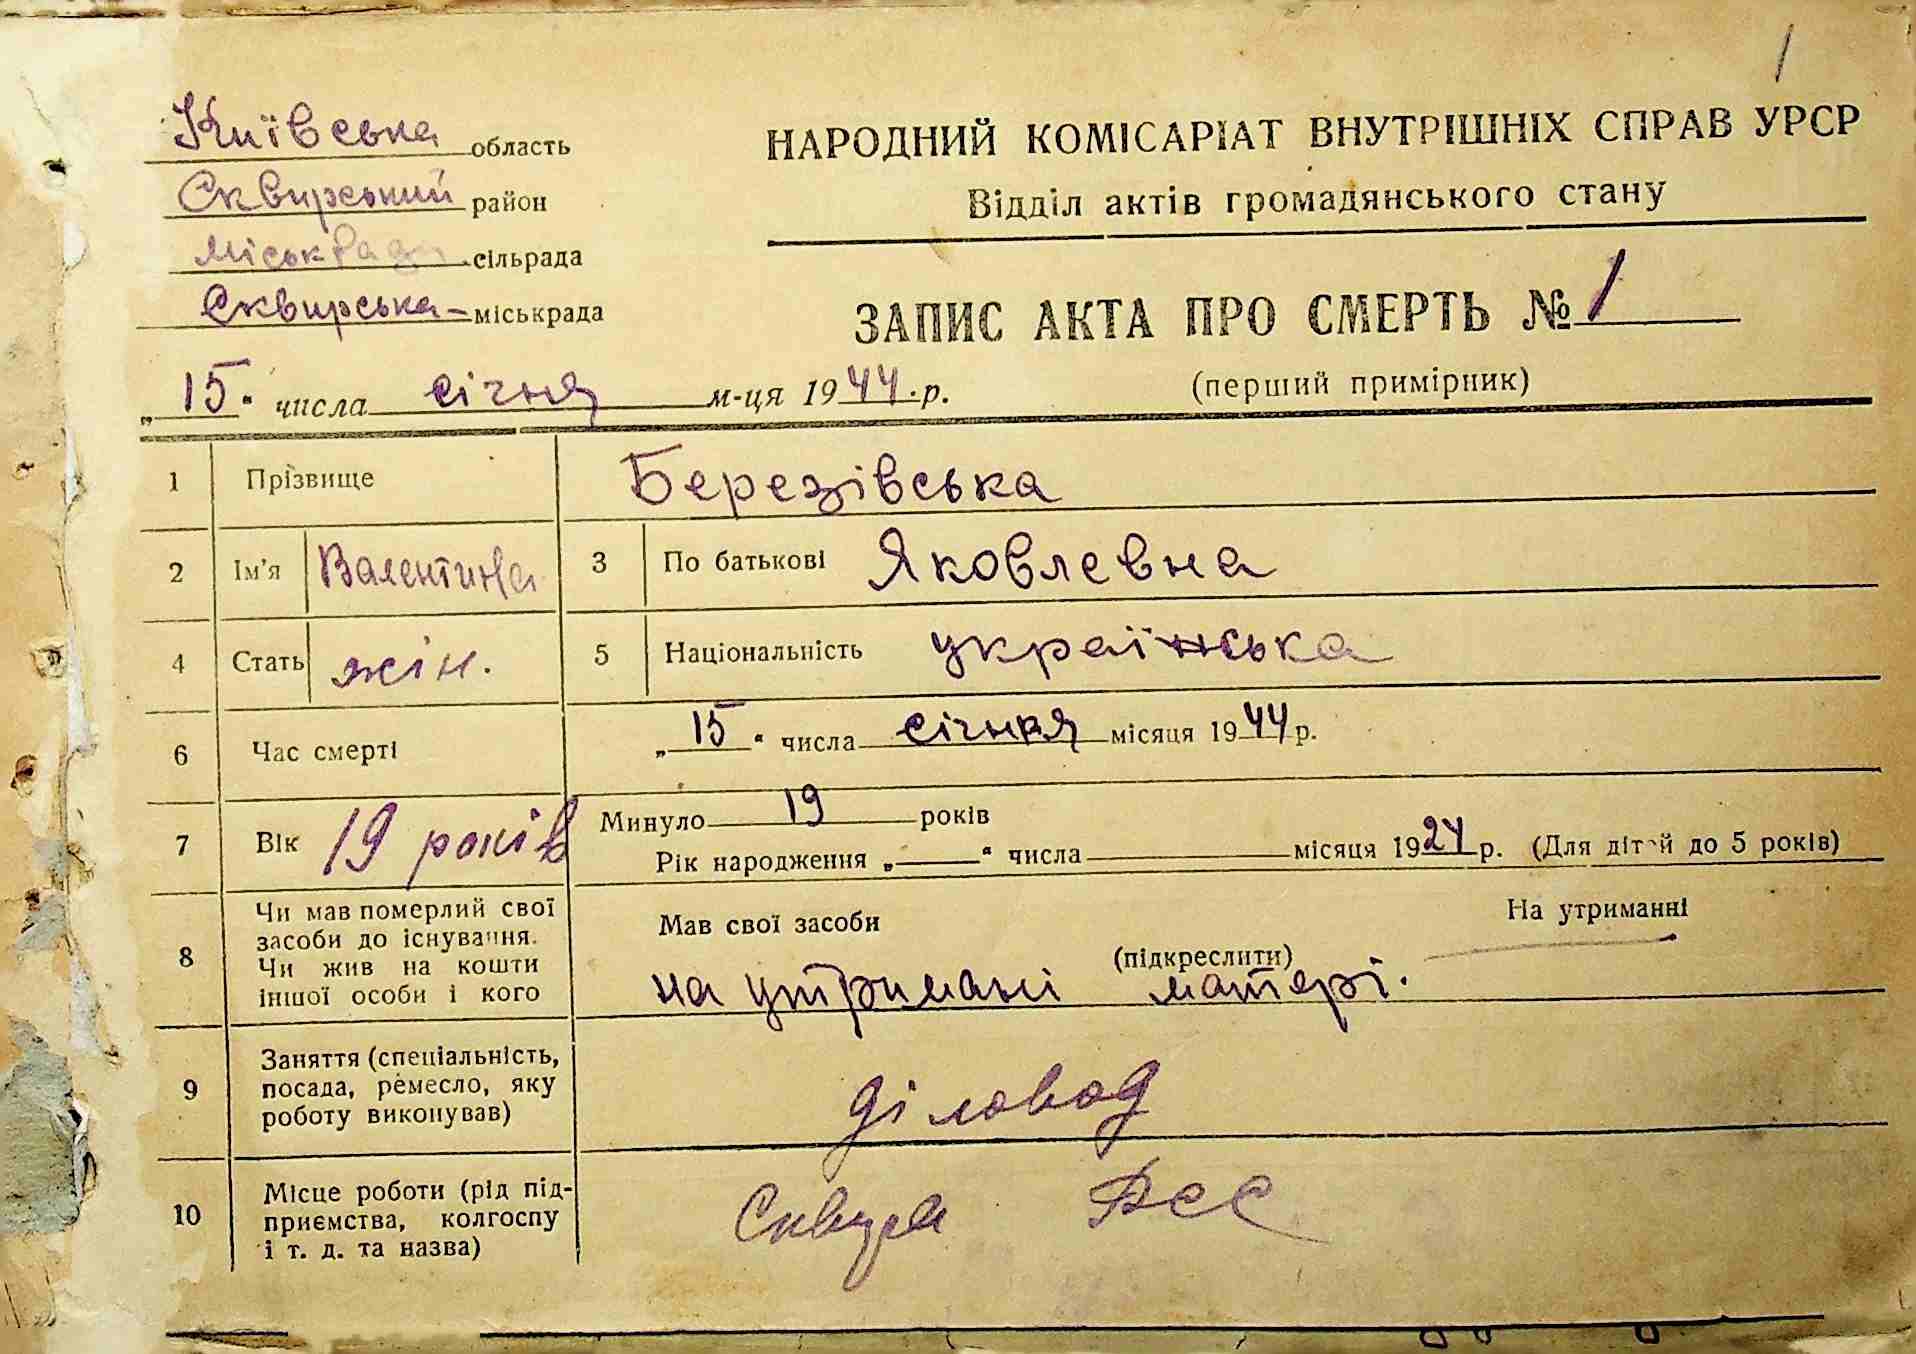 1
Київська область
Сквирський район
міськрада сільрада
Сквирська - міськрада
НАРОДНИЙ КОМІСАРІАТ ВНУТРІШНІХ СПРАВ УРСР
Відділ актів громадянського стану
ЗАПИС АКТА ПРО СМЕРТЬ № 1
(перший примірник)
„15“ числа січня м-ця 1944 р.
1 Прізвище Березівська
2 Ім’я Валентина 3 По батькові Яковлевна
4 Стать жін. 5 Національність українська
6 Час смерті „15“ числа січня місяця 1944 р.
7 Вік 19 років Минуло 19 років
Рік народження „ “ числа місяця 1924 р. (Для дітей до 5 років)
8 Чи мав померлий свої
засоби до існування.
Чи жив на кошти
іншої особи і кого
Мав свої засоби На утриманні
(підкреслити)
на утримані матері.
9 Заняття (спеціальність,
посада, ремесло, яку
роботу виконував)
діловод
10 Місце роботи (рід під-
приємства, колгоспу
і т. д. та назва)
Сквира